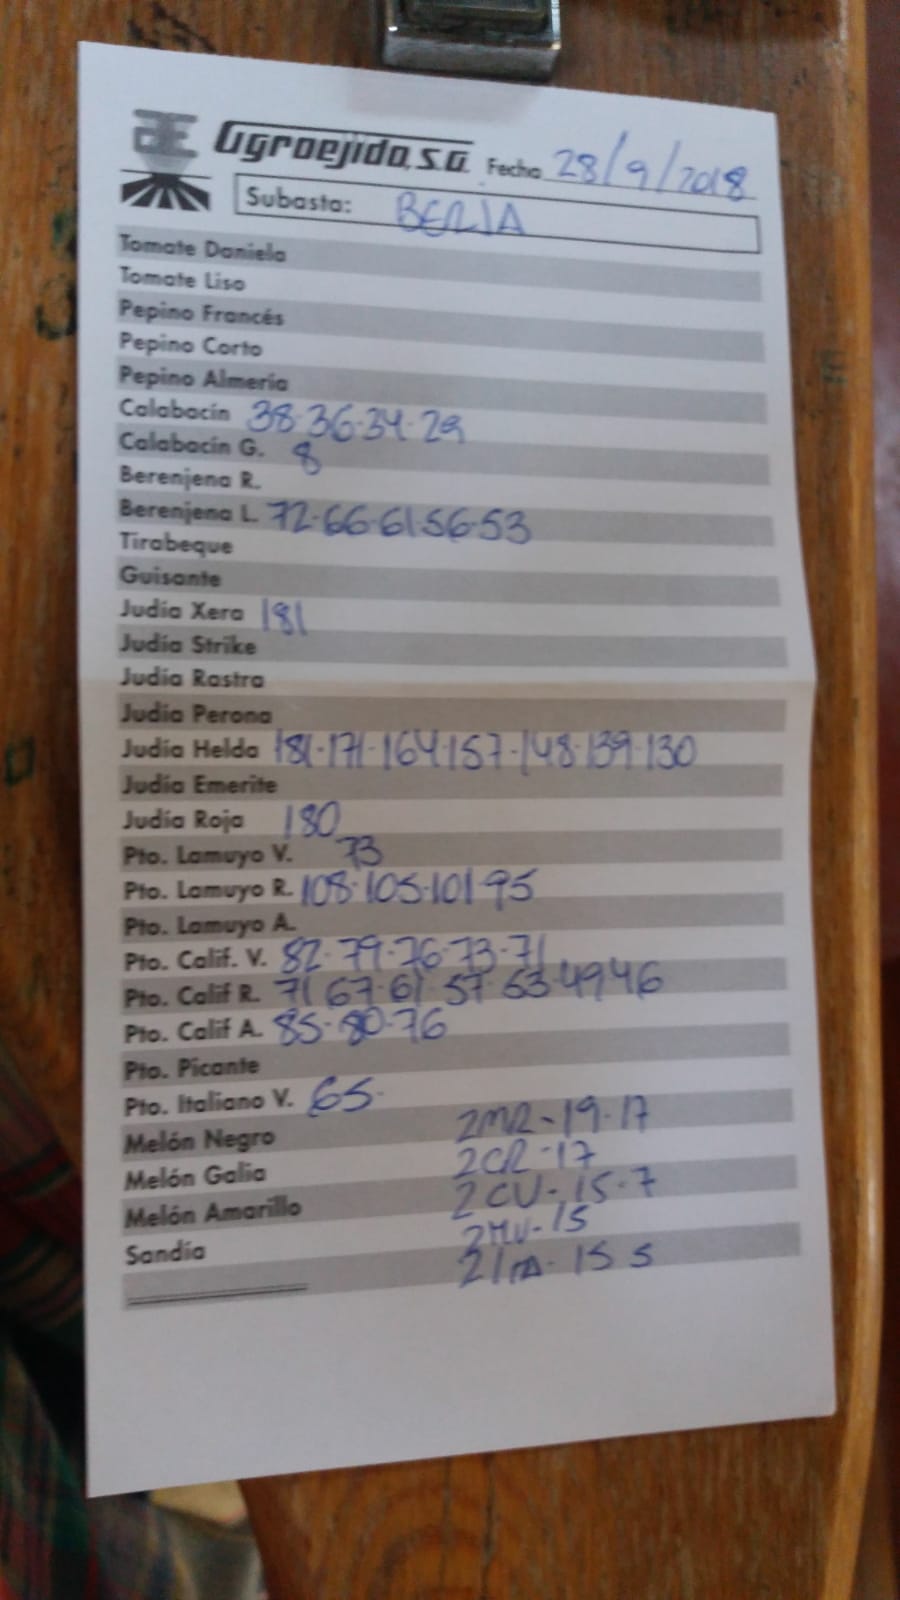 AE Agroejido, S.A. Fecha 28/9/2018
Subasta: BERJA
Tomate Daniela
Tomate Liso
Pepino Francés
Pepino Corto
Pepino Almería
Calabacín 38-36-34-29
Calabacín G. 8
Berenjena R.
Berenjena L. 72-66-61-56-53
Tirabeque
Guisante
Judía Xera 181
Judía Strike
Judía Rastra
Judía Perona
Judía Helda 181-171-164-157-148-139-130
Judía Emerite
Judía Roja 180
Pto. Lamuyo V. 73
Pto. Lamuyo R. 108-105-101-95
Pto. Lamuyo A.
Pto. Calif. V. 82-79-76-73-71
Pto. Calif R. 71 67-61-57-53-49-46
Pto. Calif A. 85-80-76
Pto. Picante
Pto. Italiano V. 65-
Melón Negro 2MR-19-17
Melón Galia 2CR-17
Melón Amarillo 2CU-15-7
Sandía 2MU-15
15 5